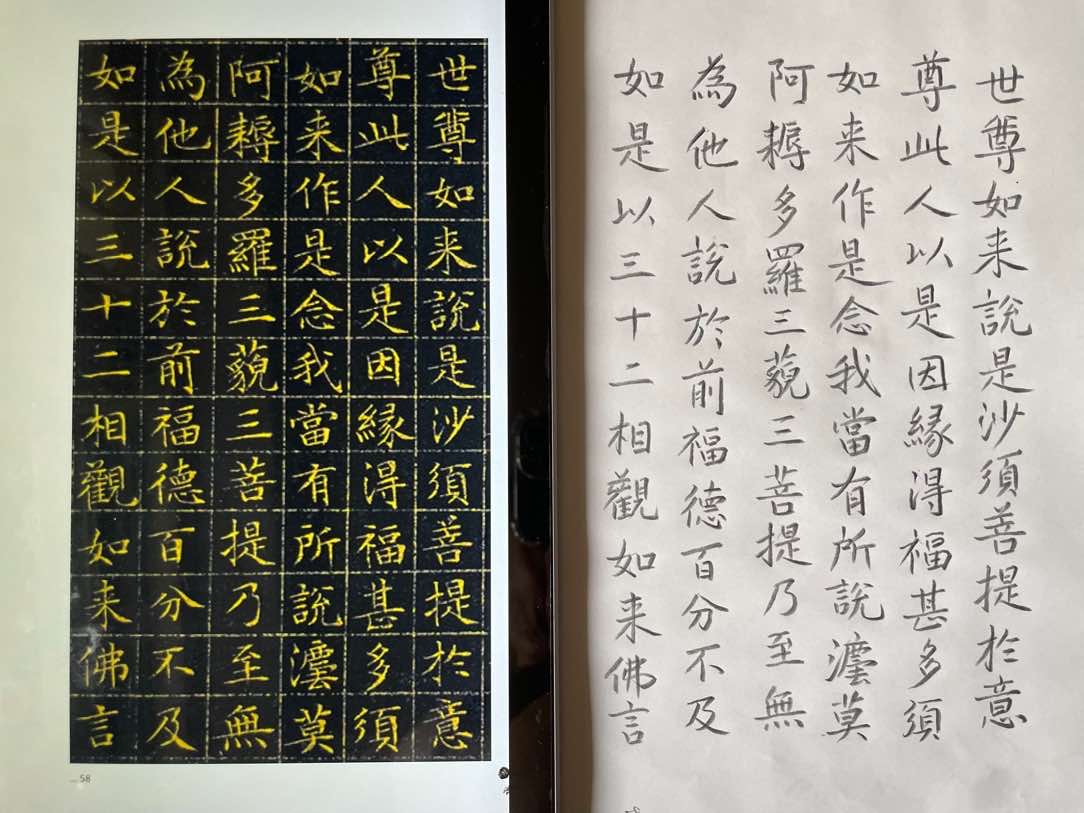 世尊如来說是沙須菩提於意
尊此人以是因縁得福甚多須
如来作是念我當有所說𤅀莫
阿耨多羅三藐三菩提乃至無
為他人說於前福德百分不及
如是以三十二相觀如来佛言
58
世尊如来說是沙須菩提於意
尊此人以是因縁得福甚多須
如来作是念我當有所說𤅀莫
阿耨多羅三藐三菩提乃至無
為他人說於前福德百分不及
如是以三十二相觀如来佛言